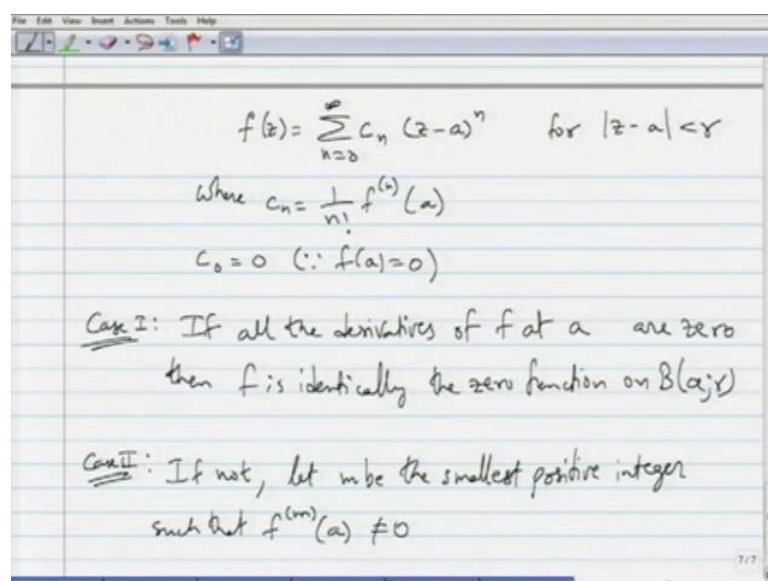 File Edit View Insert Actions Tools Help
f(z) = ∞∑n=0 cₙ (z-a)ⁿ for |z-a| < r
where cₙ = 1/n! f⁽ⁿ⁾(a)
c₀ = 0 (∵ f(a)=0)
Case I: If all the derivatives of f at a are zero
then f is identically the zero function on B(a;r)
Case II: If not, let m be the smallest positive integer
such that f⁽ᵐ⁾(a) ≠ 0
7/7